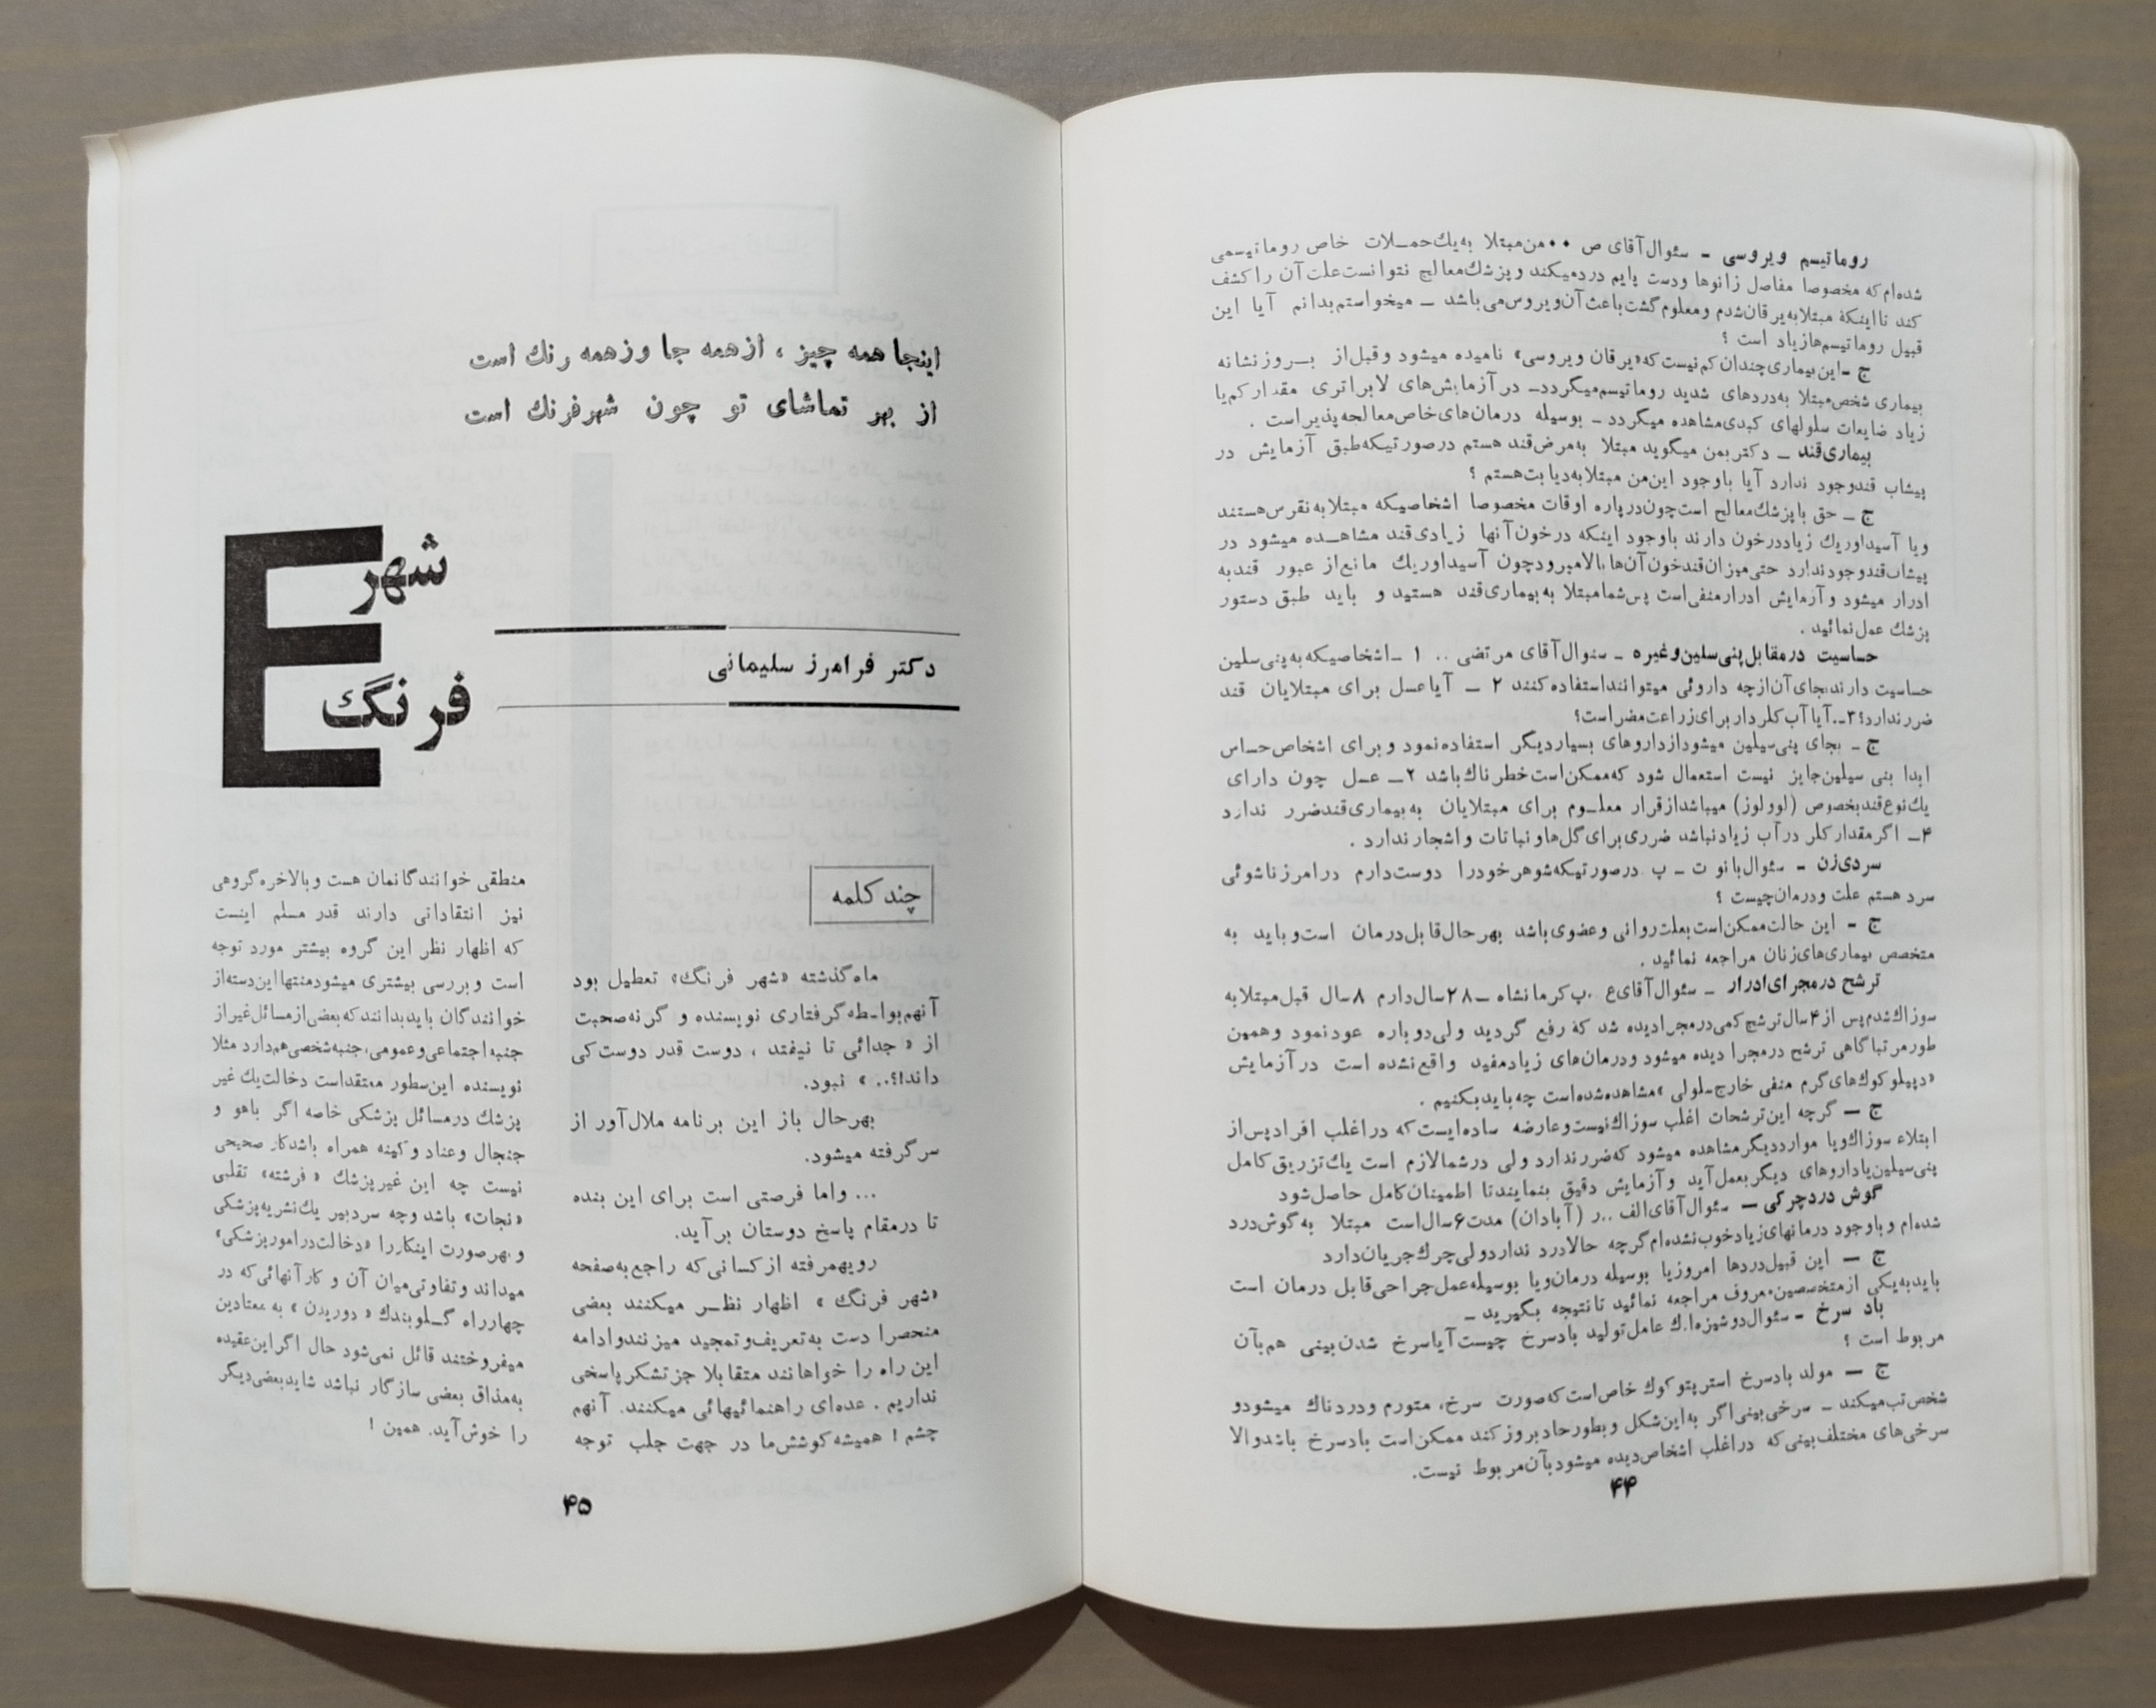 روماتیسم ویروسی ـ سئوال آقای ص ۰۰ من مبتلا به یك حمـلات خاص روماتیسمی
شده‌ام که مخصوصا مفاصل زانوها ودست پایم دردمیکند و پزشك معالج نتوانست علت آن را کشف
کند تااینکهٔ مبتلا به یرقان شدم و معلوم گشت باعث آن ویروس می باشد ـ میخواستم بدانم آیا این
قبیل روماتیسم‌ها زیاد است ؟
ج ـ این بیماری چندان کم نیست که «یرقان ویروسی» نامیده میشود و قبل از بـروز نشانه
بیماری شخص مبتلا به دردهای شدید روماتیسم میگردد ـ در آزمایش‌های لابراتری مقدار کم یا
زیاد ضایعات سلولهای کبدی مشاهده میگردد ـ بوسیله درمان‌های خاص معالجه پذیر است .
بیماری قند ـ دکتر بمن میگوید مبتلا به مرض قند هستم درصورتیکه طبق آزمایش در
پیشاب قند وجود ندارد آیا با وجود این من مبتلا به دیابت هستم ؟
ج ـ حق با پزشك معالج است چون درپاره اوقات مخصوصا اشخاصیکه مبتلا به نقرس هستند
ویا آسیداوریك زیاد درخون دارند با وجود اینکه درخون آنها زیادی قند مشاهـده میشود در
پیشاب قند وجود ندارد حتی میزان قند خون آن‌ها بالا میرود چون آسیداوریك مانع از عبور قند به
ادرار میشود و آزمایش ادرار منفی است پس شما مبتلا به بیماری قند هستید و باید طبق دستور
پزشك عمل نمائید .
حساسیت درمقابل پنی سلین وغیره ـ سئوال آقای مرتضی .. ۱ ـ اشخاصیکه به پنی سلین
حساسیت دارند بجای آن از چه داروئی میتوانند استفاده کنند ۲ ـ آیا عسل برای مبتلایان قند
ضرر ندارد؟ ۳ـ.آیا آب کلردار برای زراعت مضر است؟
ج ـ بجای پنی سیلین میشود از داروهای بسیار دیگر استفاده نمود و برای اشخاص حساس
ابدا پنی سیلین جایز نیست استعمال شود که ممکن است خطرناك باشد ۲ـ عسل چون دارای
یك نوع قند بخصوص (لوولوز) میباشد از قرار معلـوم برای مبتلایان به بیماری قند ضرر ندارد
۴ـ اگر مقدار کلر در آب زیاد نباشد ضرری برای گل‌ها و نباتات و اشجار ندارد .
سردی زن ـ سئوال بانو ت ـ پ درصورتیکه شوهر خود را دوست دارم در امر زناشوئی
سرد هستم علت ودرمان چیست ؟
ج ـ این حالت ممکن است بعلت روانی و عضوی باشد بهرحال قابل درمان است و باید به
متخصص بیماری‌های زنان مراجعه نمائید .
ترشح درمجرای ادرار ـ سئوال آقای ع .پ کرمانشاه ـ ۲۸ سال دارم ۸ سال قبل مبتلا به
سوزاك شدم پس از ۴ سال ترشح کمی درمجرا دیده شد که رفع گردید ولی دوباره عود نمود وهمین
طور مرتبا گاهی ترشح درمجرا دیده میشود و درمان‌های زیاد مفید واقع نشده است در آزمایش
«دیپلوکوك‌های گرم منفی خارج سلولی » مشاهده شده است چه باید بکنیم .
ج ـ گرچه این ترشحات اغلب سوزاك نیست و عارضه ساده‌ایست که در اغلب افراد پس از
ابتلاء سوزاك ویا موارد دیگر مشاهده میشود که ضرر ندارد ولی درشما لازم است یك تزریق کامل
پنی سیلین یا داروهای دیگر بعمل آید و آزمایش دقیق بنمایند تا اطمینان کامل حاصل شود
گوش درد چرکی ـ سئوال آقای الف ..ر (آبادان) مدت ۶ سال است مبتلا به گوش درد
شده‌ام و با وجود درمانهای زیاد خوب نشده‌ام گرچه حالا درد ندارد ولی چرك جریان دارد
ج ـ این قبیل دردها امروز یا بوسیله درمان ویا بوسیله عمل جراحی قابل درمان است
باید به یکی از متخصصین معروف مراجعه نمائید تا نتیجه بگیرید ـ
باد سرخ ـ سئوال دوشیزه ا.ك عامل تولید بادسرخ چیست آیا سرخ شدن بینی هم بآن
مربوط است ؟
ج ـ مولد بادسرخ استرپتوکوك خاص است که صورت سرخ، متورم و دردناك میشود و
شخص تب میکند ـ سرخی بینی اگر به این شکل و بطور حاد بروز کند ممکن است بادسرخ باشد والا
سرخی‌های مختلف بینی که در اغلب اشخاص دیده میشود بآن مربوط نیست.
۴۴
اینجا همه چیز ، از همه جا وز همه رنك است
از بهر تماشای تو چون شهرفرنك است
شهر
فرنگ
دکتر فرامرز سلیمانی
چند کلمه
ماه گذشته «شهر فرنگ» تعطیل بود
آنهم بواسطه گرفتاری نویسنده و گرنه صحبت
از « جدائی تا نیفتد ، دوست قدر دوست کی
داند!؟.. » نبود.
بهرحال باز این برنامه ملال‌آور از
سر گرفته میشود.
... واما فرصتی است برای این بنده
تا درمقام پاسخ دوستان بر آید.
رویهمرفته از کسانی که راجع به صفحه
«شهر فرنگ » اظهار نظـر میکنند بعضی
منحصرا دست به تعریف و تمجید میزنند و ادامه
این راه را خواهانند متقابلا جز تشکر پاسخی
نداریم . عده‌ای راهنمائیهائی میکنند. آنهم
چشم ! همیشه کوشش ما در جهت جلب توجه
منطقی خوانندگانمان هست و بالاخره گروهی
نیز انتقاداتی دارند قدر مسلم اینست
که اظهار نظر این گروه بیشتر مورد توجه
است و بررسی بیشتری میشود منتها این دسته از
خوانندگان باید بدانند که بعضی از مسائل غیر از
جنبه اجتماعی و عمومی، جنبه شخصی هم دارد مثلا
نویسنده این سطور معتقد است دخالت یك غیر
پزشك در مسائل پزشکی خاصه اگر باهو و
جنجال و عناد و کینه همراه باشد کار صحیحی
نیست چه این غیر پزشك « فرشته» تقلبی
«نجات» باشد وچه سردبیر یك نشریه پزشکی
و بهر صورت اینکار را «دخالت در امور پزشکی»
میداند و تفاوتی میان آن و کار آنهائی که در
چهارراه گـلوبندك « دوریدن » به معتادین
میفروختند قائل نمی‌شود حال اگر این عقیده
به مذاق بعضی سازگار نباشد شاید بعضی دیگر
را خوش آید. همین !
۴۵